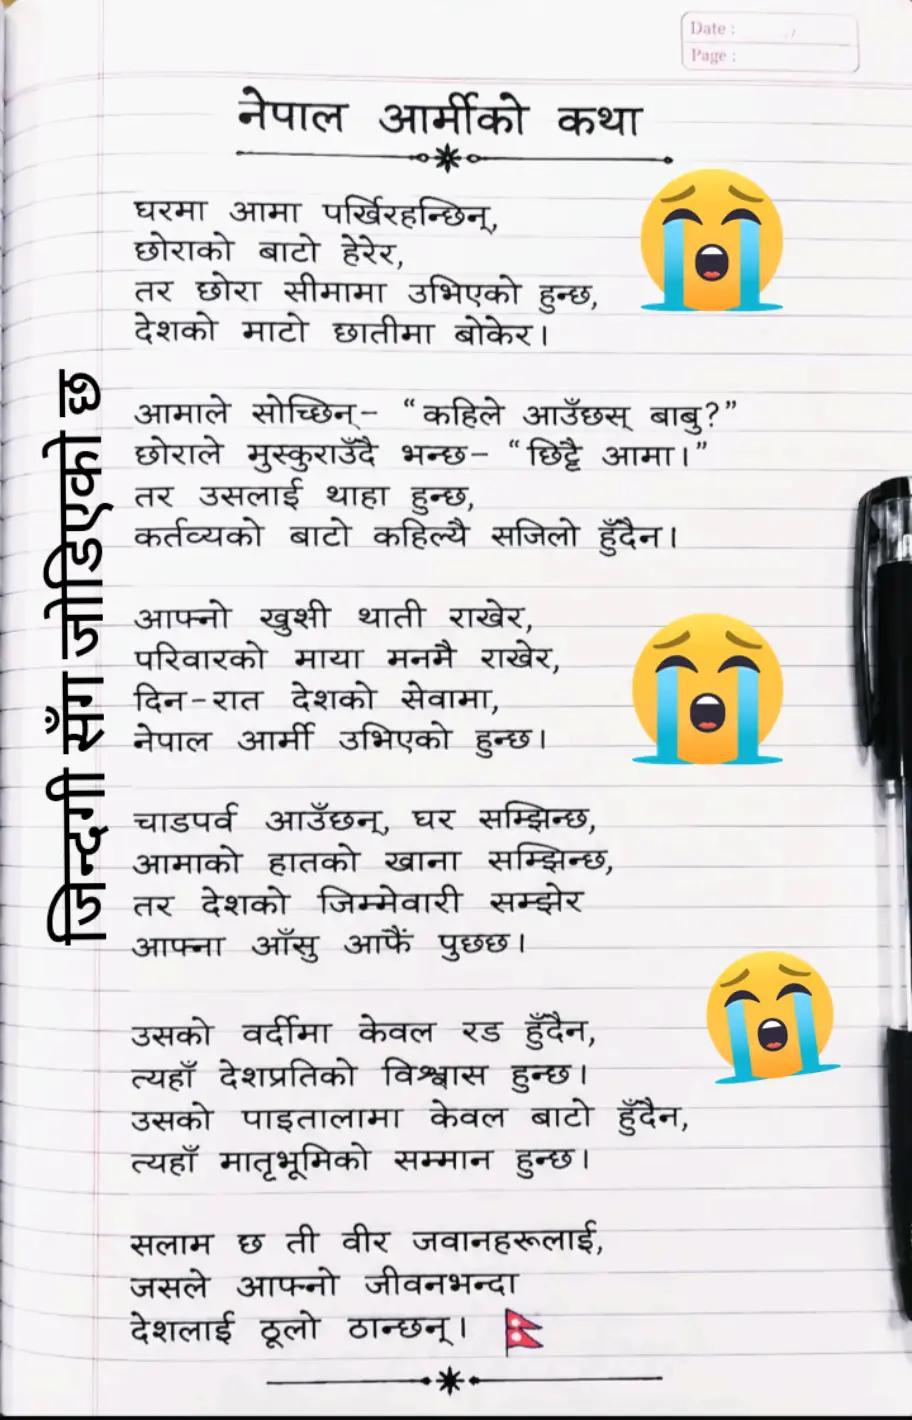 Date :
Page :
नेपाल आर्मीको कथा
घरमा आमा पर्खिरहन्छिन्,
छोराको बाटो हेरेर,
तर छोरा सीमामा उभिएको हुन्छ,
देशको माटो छातीमा बोकेर।
आमाले सोच्छिन्- “कहिले आउँछस् बाबु?”
छोराले मुस्कुराउँदै भन्छ- “छिट्टै आमा।”
तर उसलाई थाहा हुन्छ,
कर्तव्यको बाटो कहिल्यै सजिलो हुँदैन।
आफ्नो खुशी थाती राखेर,
परिवारको माया मनमै राखेर,
दिन-रात देशको सेवामा,
नेपाल आर्मी उभिएको हुन्छ।
चाडपर्व आउँछन्, घर सम्झिन्छ,
आमाको हातको खाना सम्झिन्छ,
तर देशको जिम्मेवारी सम्झेर
आफ्ना आँसु आफैं पुछछ।
उसको वर्दीमा केवल रड हुँदैन,
त्यहाँ देशप्रतिको विश्वास हुन्छ।
उसको पाइतालामा केवल बाटो हुँदैन,
त्यहाँ मातृभूमिको सम्मान हुन्छ।
सलाम छ ती वीर जवानहरूलाई,
जसले आफ्नो जीवनभन्दा
देशलाई ठूलो ठान्छन्।
जिन्दगी सँग जोडिएको छ